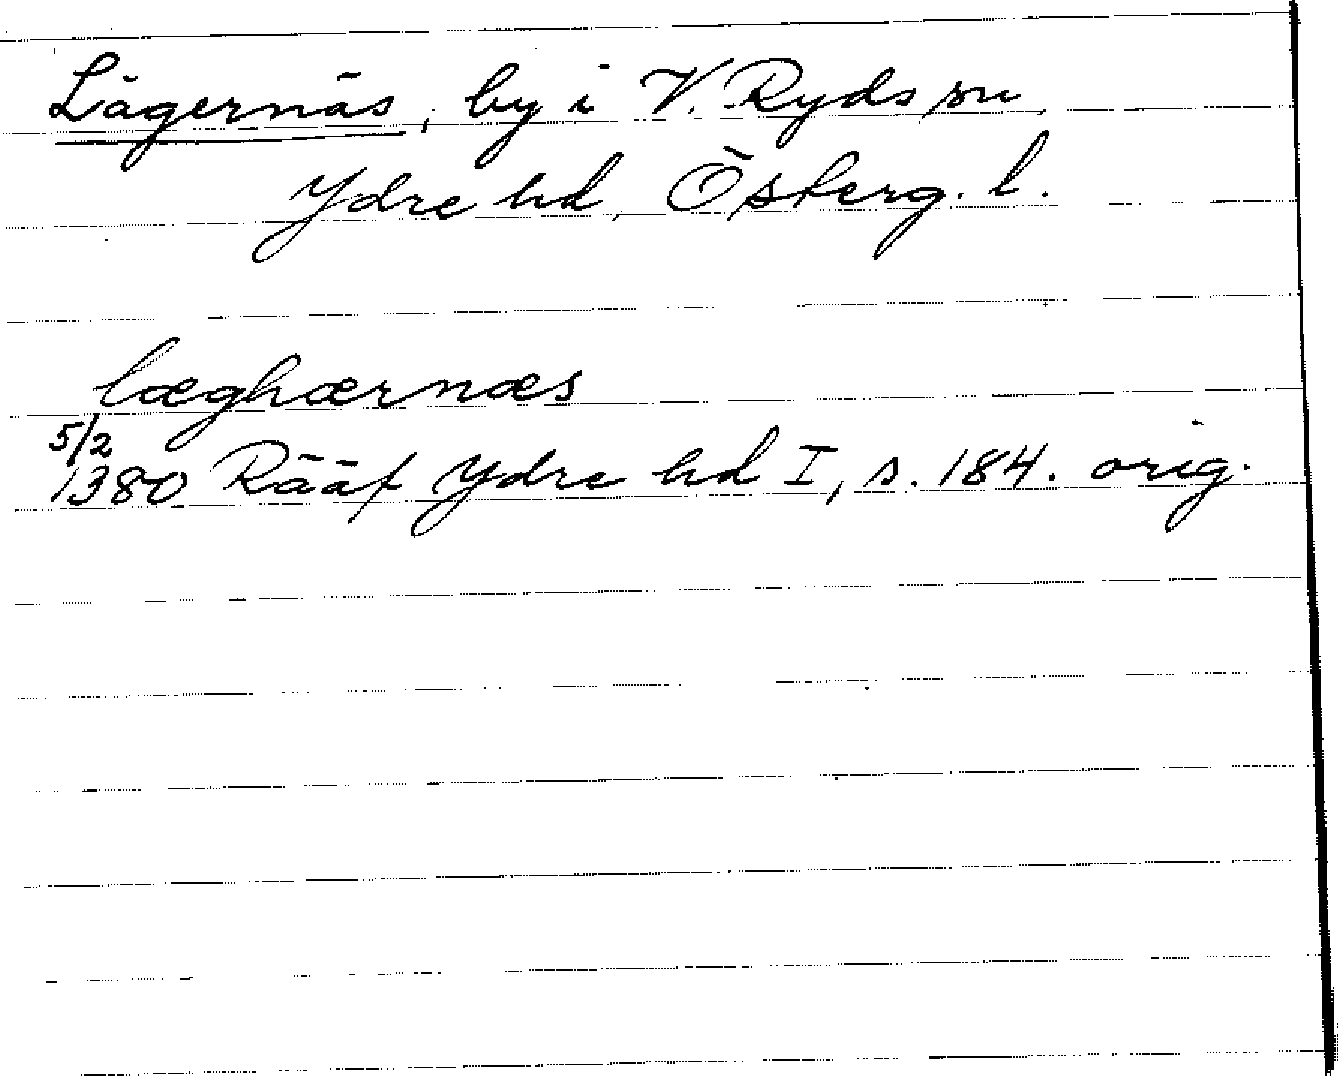 Lägernäs, by i V. Ryds sn
Ydre hd, Österg. l.
læghærnæs
5/2
1380 Rääf Ydre hd I, s. 184. orig.